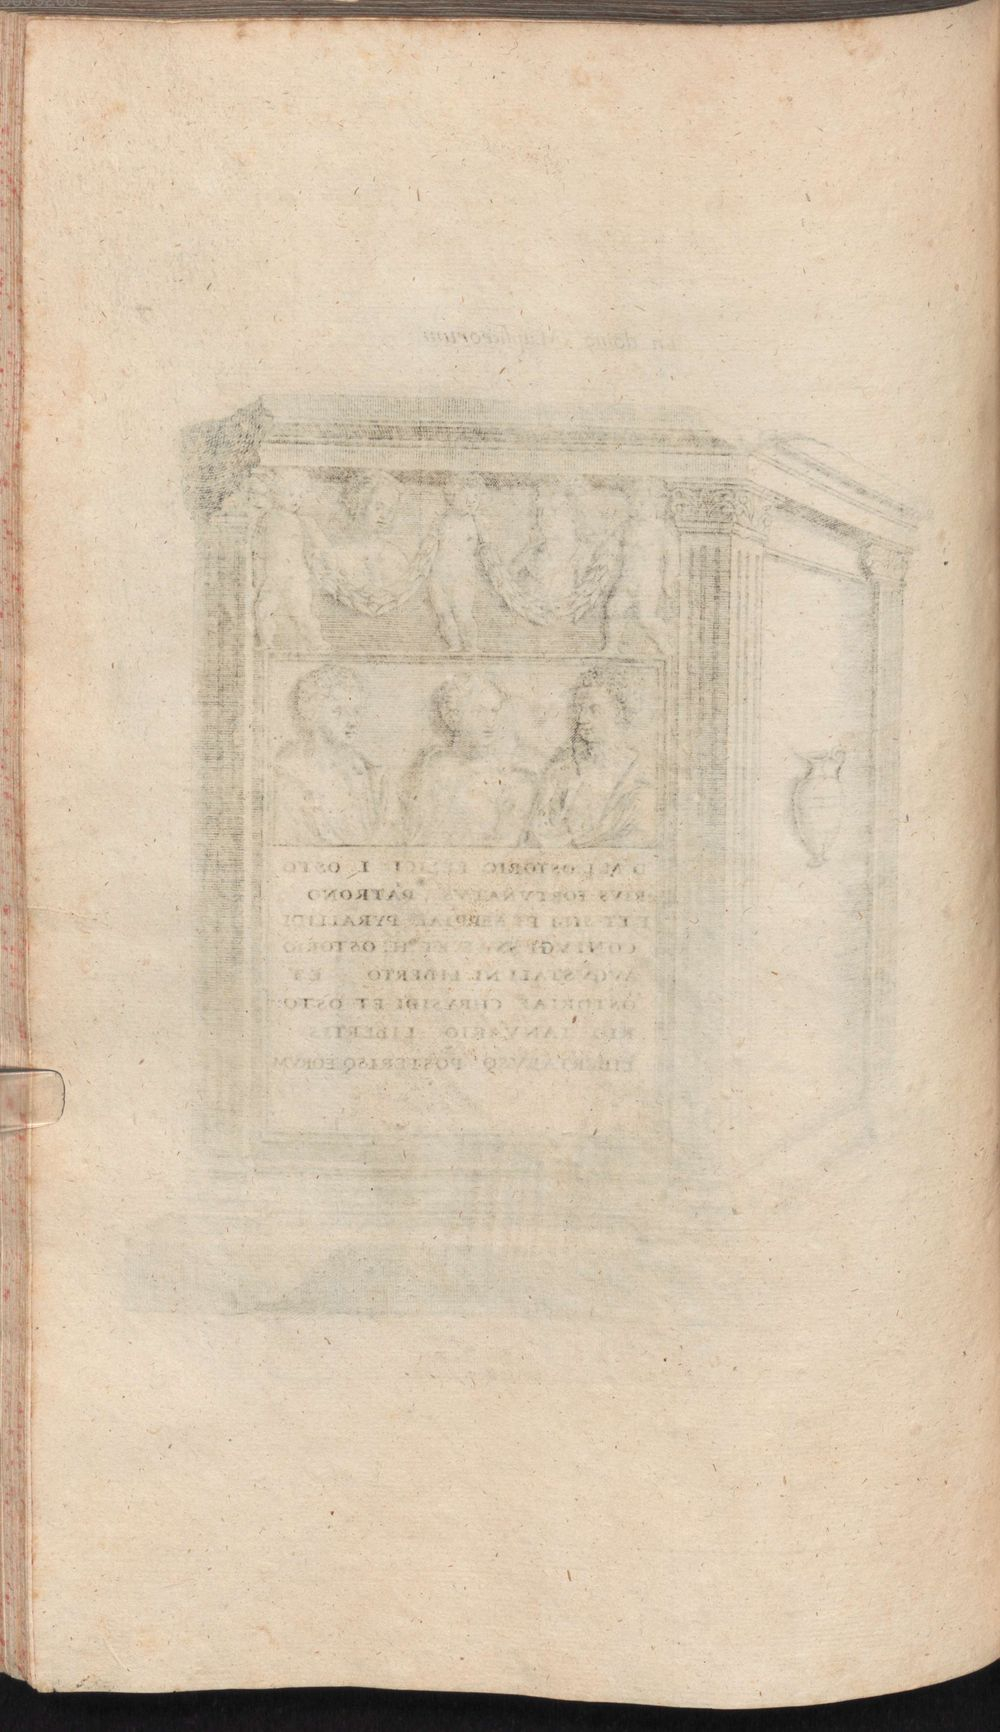 In
D M L OSTORIO FELICI L OSTO
RIVS FORTVNATVS PATRONO
ET SIBI ET PYRALLIDI
CONIVGI SVAE ET OSTORIO
LIBERTO ET
OSTORIAE CHRYSIDI ET OSTO
RIO IANVARIO LIBERTIS
LIBERTABVSQ POSTERISQ EORVM